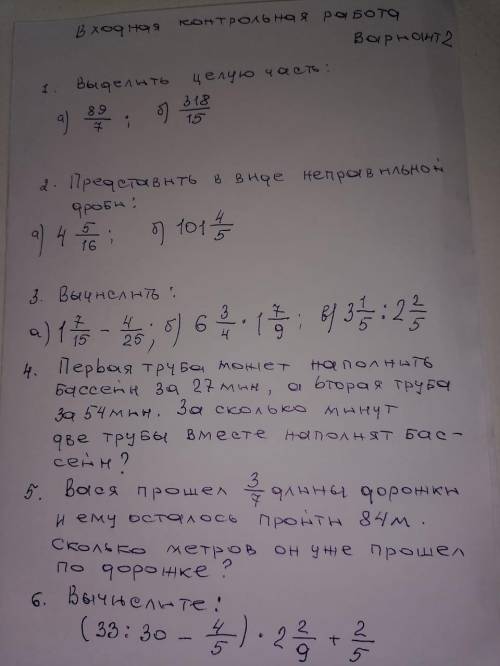 Входная контрольная работа
Вариант 2
1. Выделить целую часть:
а) 89/7 ; б) 318/15
2. Представить в виде неправильной
дроби:
а) 4 5/16 ; б) 101 4/5
3. Вычислить:
а) 1 7/15 - 4/25 ; б) 6 3/4 · 1 7/9 ; в) 3 1/5 : 2 2/5
4. Первая труба может наполнить
бассейн за 27 мин, а вторая труба
за 54 мин. За сколько минут
две трубы вместе наполнят бас-
сейн?
5. Вася прошел 3/7 длины дорожки
и ему осталось пройти 84 м.
Сколько метров он уже прошел
по дорожке?
6. Вычислите:
(33 : 30 - 4/5) · 2 2/9 + 2/5